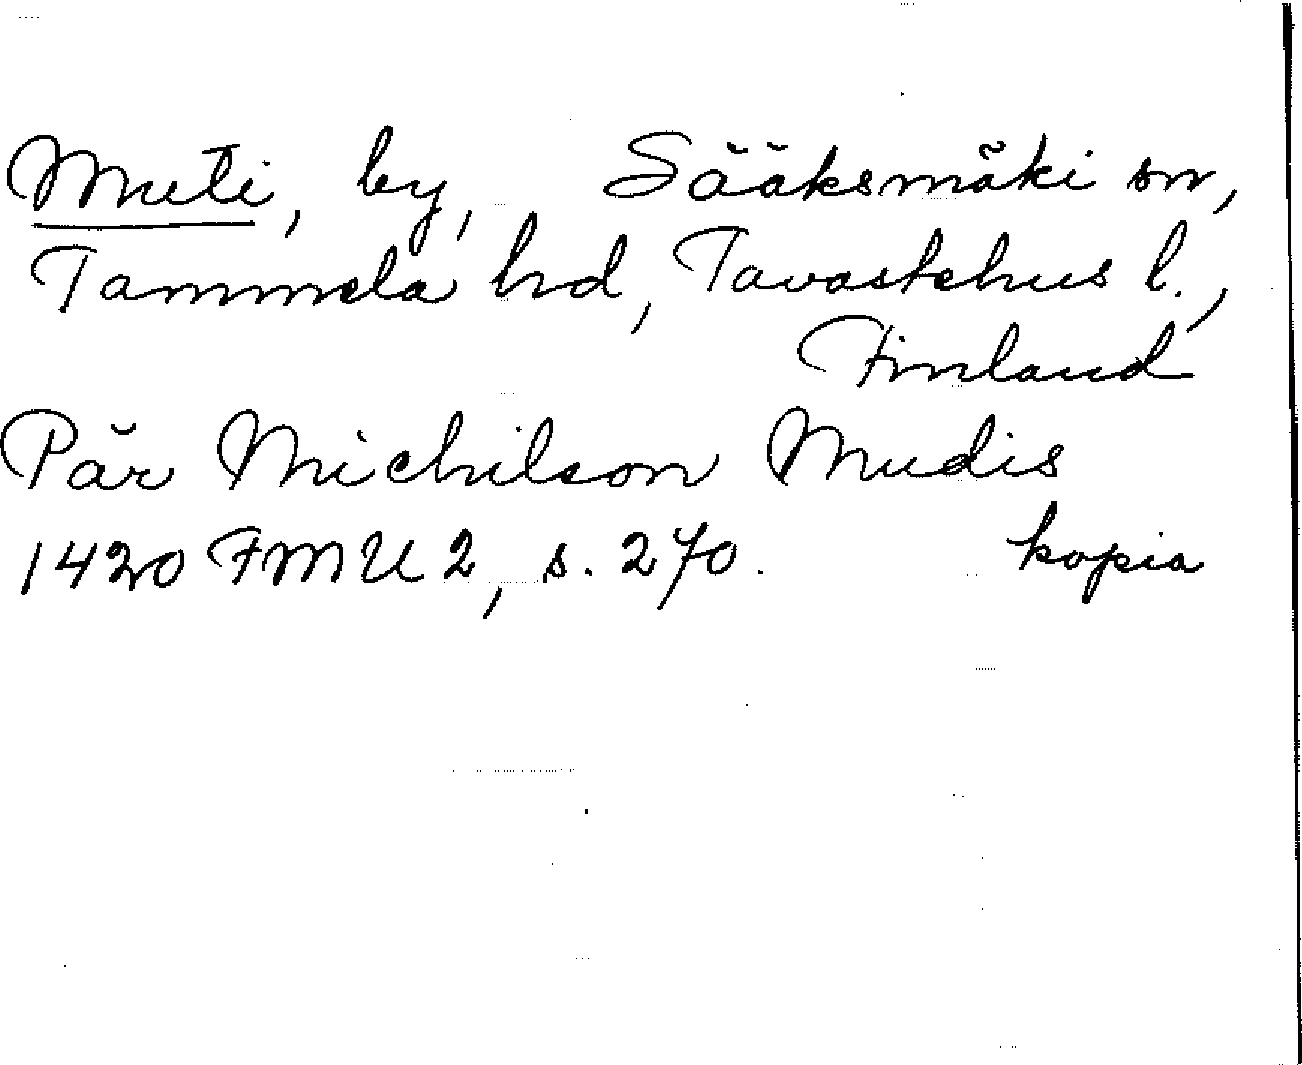 Muti, by, Sääksmäki sn,
Tammela hd, Tavastehus l.,
Finland
Pär Michilson Mudis
1420 FMU 2, s. 270. kopia